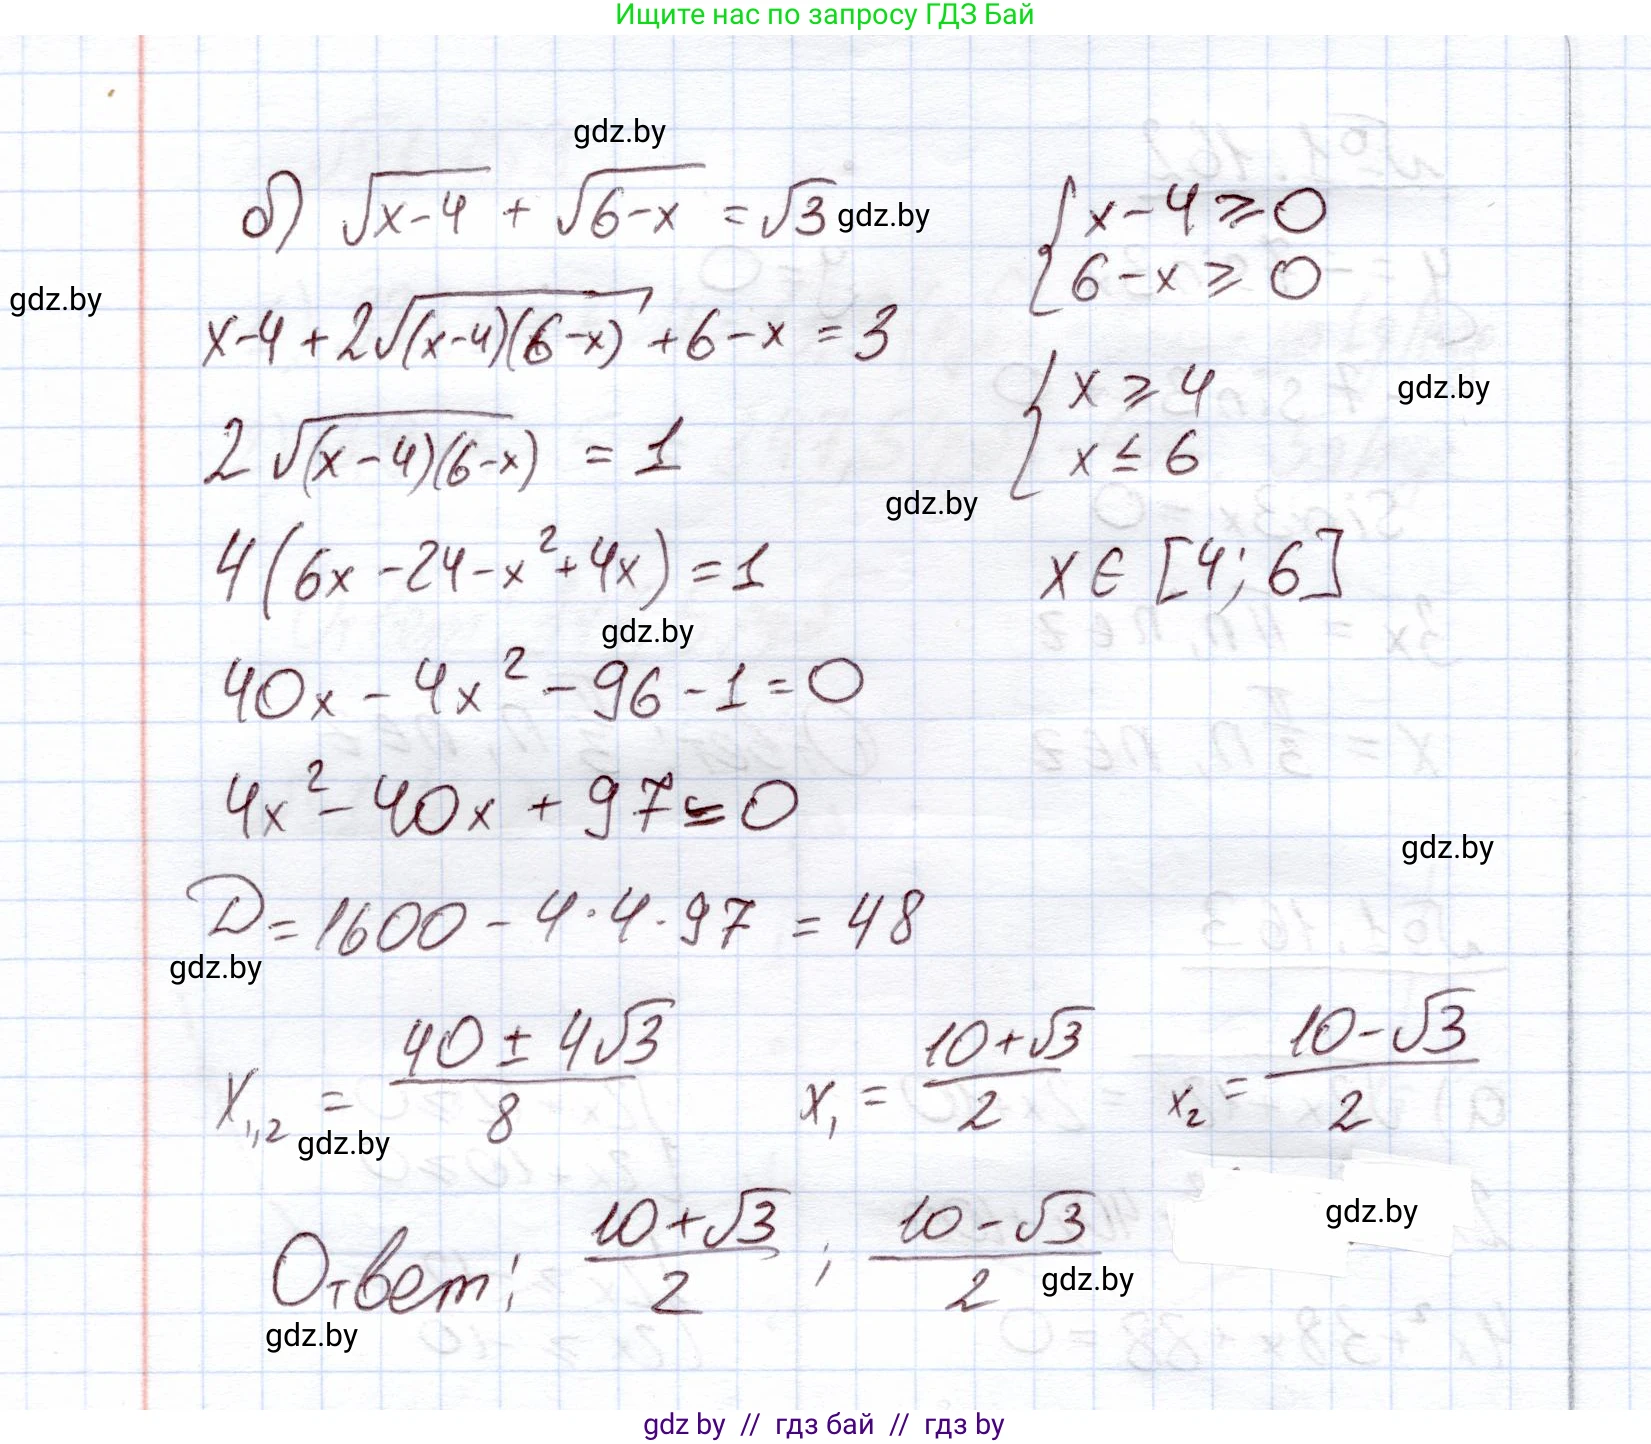 Ищите нас по запросу ГДЗ Бай
gdz.by
б) √(x-4) + √(6-x) = √3 gdz.by
{ x-4 ≥ 0
6-x ≥ 0
gdz.by
x-4 + 2√((x-4)(6-x)) + 6-x = 3
{ x ≥ 4
x ≤ 6
gdz.by
2√((x-4)(6-x)) = 1
gdz.by
4(6x-24-x²+4x) = 1
x ∈ [4; 6]
gdz.by
40x - 4x² - 96 - 1 = 0
4x² - 40x + 97 = 0
gdz.by
D = 1600 - 4·4·97 = 48
gdz.by
x₁,₂ = (40 ± 4√3)/8 x₁ = (10+√3)/2 x₂ = (10-√3)/2
gdz.by
gdz.by
Ответ: (10+√3)/2 ; (10-√3)/2
gdz.by
gdz.by
gdz by // гдз бай // гдз by